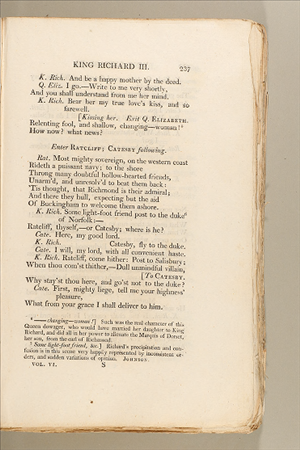 KING RICHARD III. 237
K. Rich. And be a happy mother by the deed.
Q. Eliz. I go.—Write to me very shortly,
And you shall understand from me her mind.
K. Rich. Bear her my true love's kiss, and so
farewell.
[Kissing her. Exit Q. ELIZABETH.
Relenting fool, and shallow, changing—woman!⁶
How now? what news?
Enter RATCLIFF; CATESBY following.
Rat. Most mighty sovereign, on the western coast
Rideth a puissant navy; to the shore
Throng many doubtful hollow-hearted friends,
Unarm'd, and unresolv'd to beat them back:
'Tis thought, that Richmond is their admiral;
And there they hull, expecting but the aid
Of Buckingham to welcome them ashore.
K. Rich. Some light-foot friend post to the duke⁷
of Norfolk:—
Ratcliff, thyself,—or Catesby; where is he?
Cate. Here, my good lord.
K. Rich. Catesby, fly to the duke.
Cate. I will, my lord, with all convenient haste.
K. Rich. Ratcliff, come hither: Post to Salisbury;
When thou com'st thither,—Dull unmindful villain,
[To CATESBY.
Why stay'st thou here, and go'st not to the duke?
Cate. First, mighty liege, tell me your highness'
pleasure,
What from your grace I shall deliver to him.
⁶ — changing—woman!] Such was the real character of this
Queen dowager, who would have married her daughter to King
Richard, and did all in her power to alienate the Marquis of Dorset,
her son, from the earl of Richmond.
⁷ Some light-foot friend, &c.] Richard's precipitation and con-
fusion is in this scene very happily represented by inconsistent or-
ders, and sudden variations of opinion. JOHNSON.
VOL. VI. S